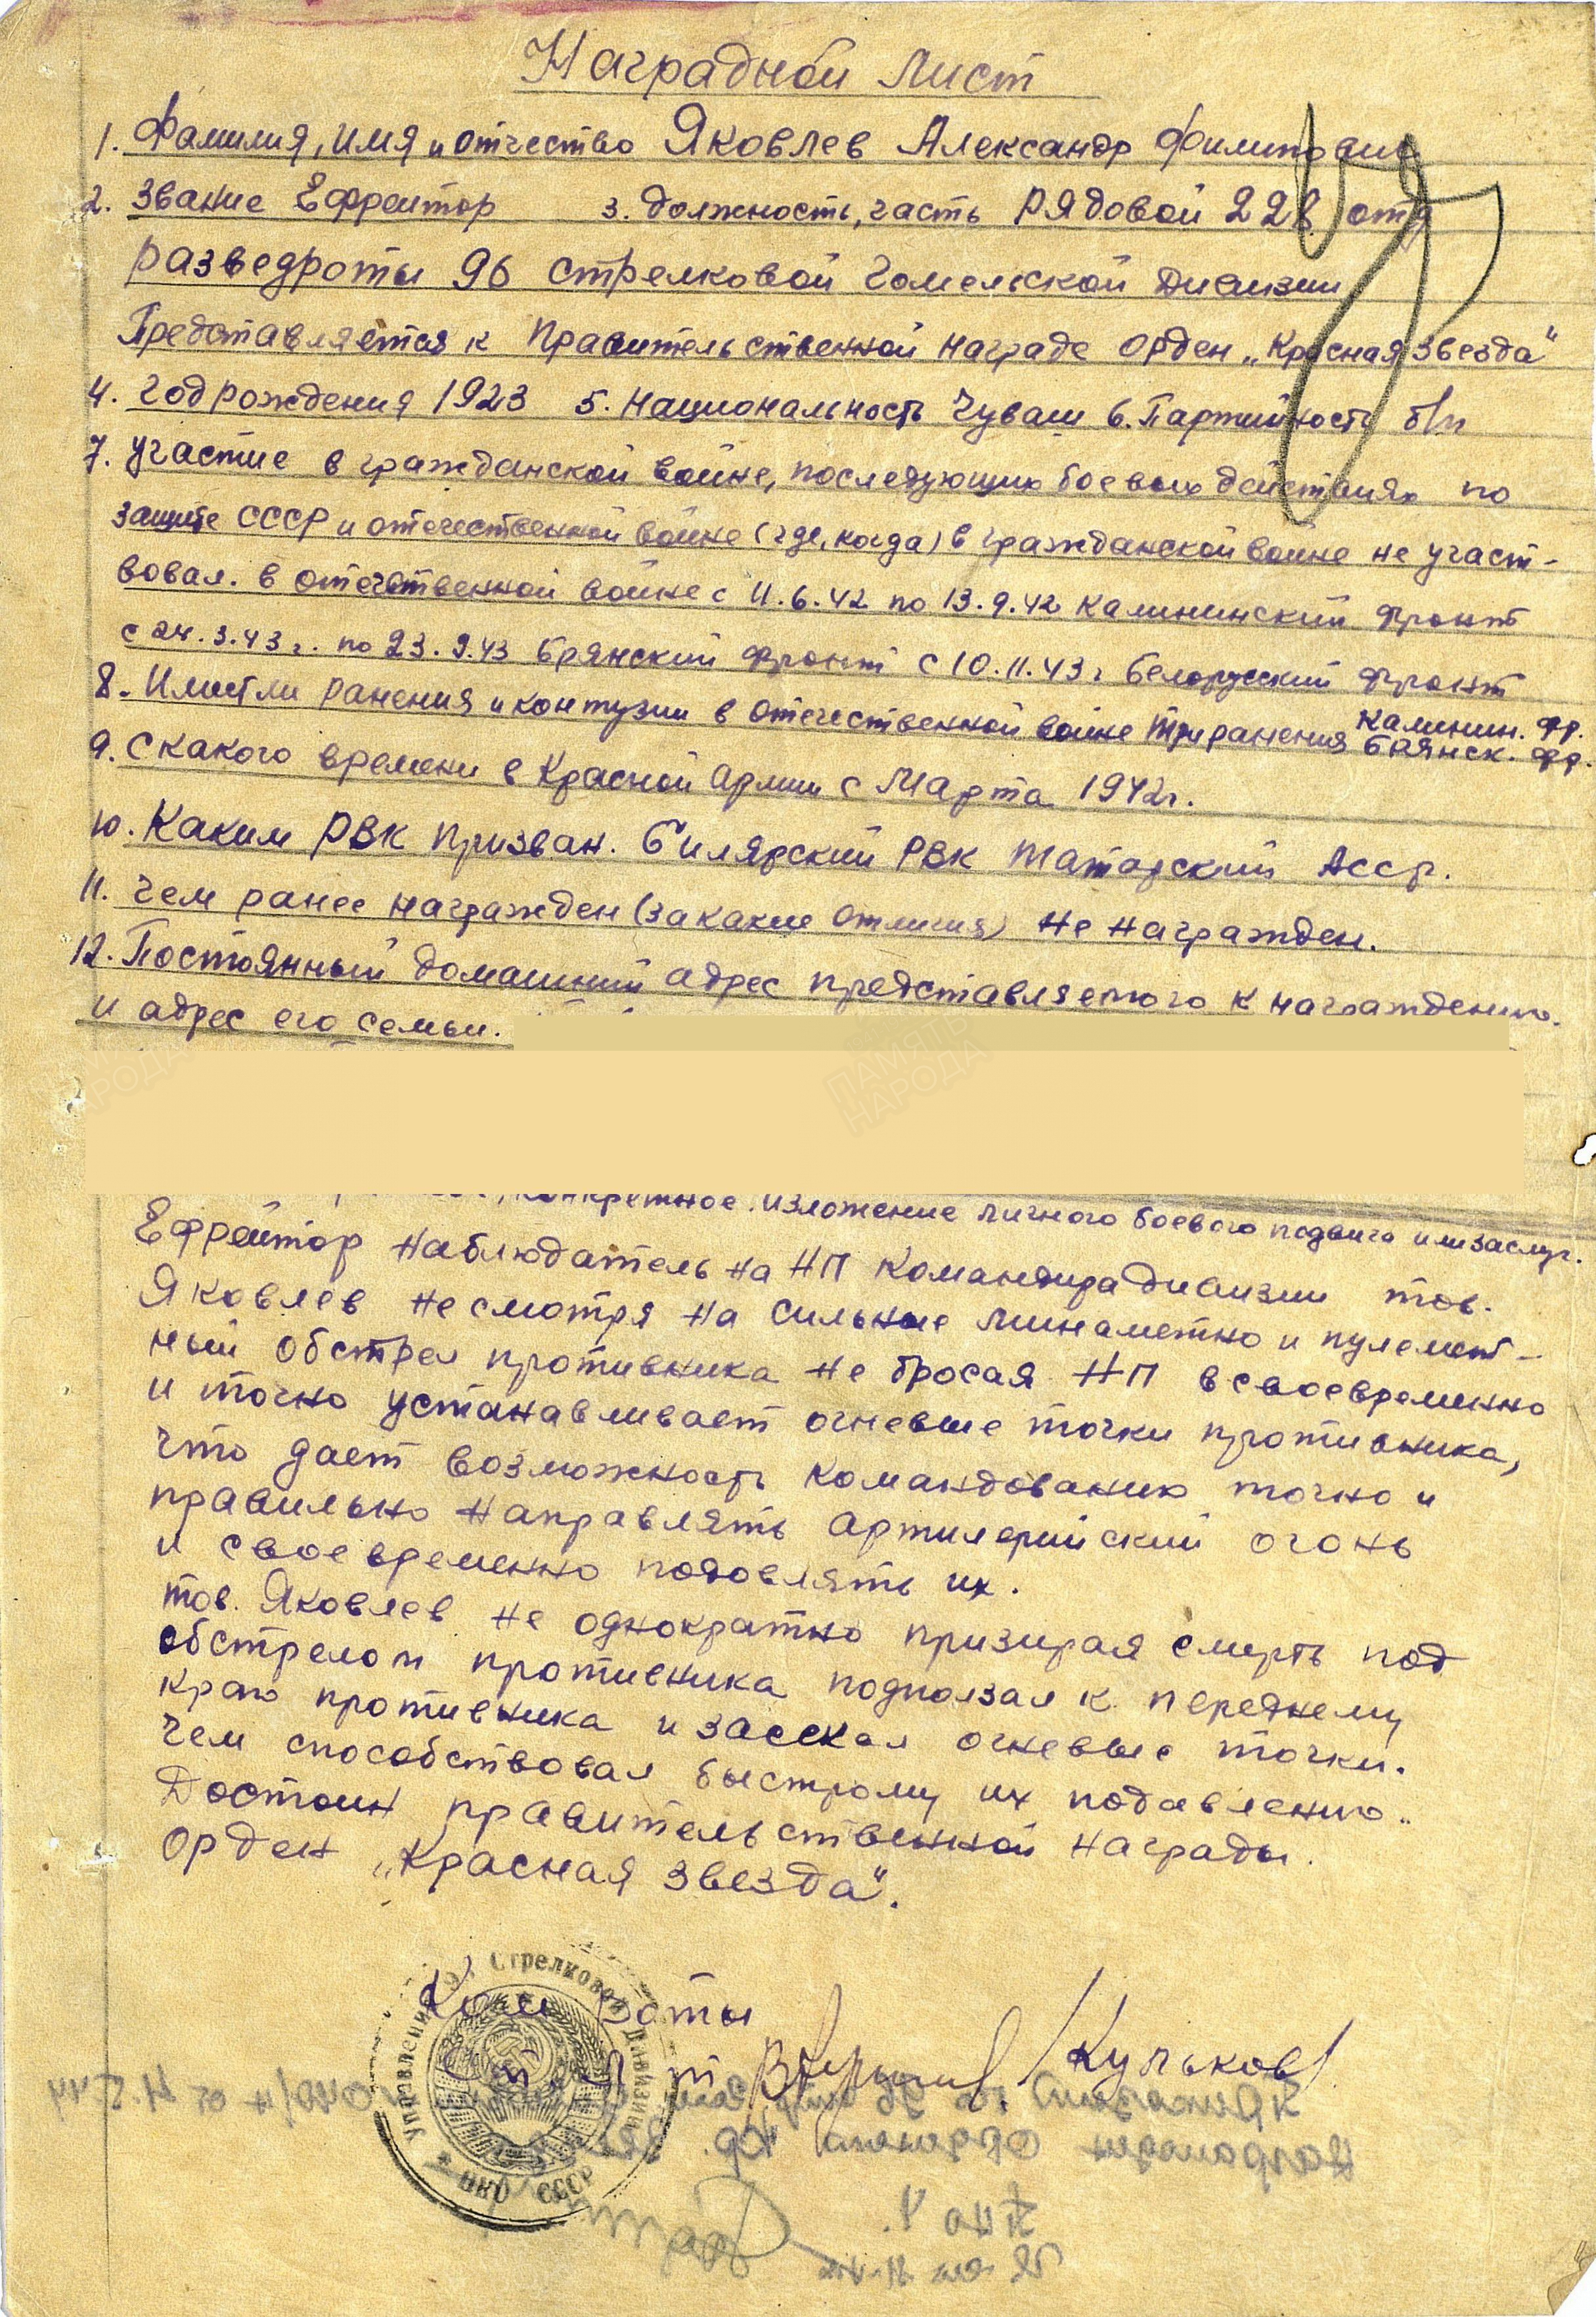 Наградной лист
1. Фамилия, имя и отчество Яковлев Александр Филипович
2. Звание Ефрейтор 3. должность, часть Рядовой 228 отд
разведроты 96 стрелковой Гомельской Дивизии
Представляется к Правительственной награде орден „Красная Звезда"
4. Год рождения 1923 5. Национальность Чуваш 6. Партийность б/п
7. Участие в гражданской войне, последующих боевых действиях по
защите СССР и отечественной войне (где, когда) в гражданской войне не участ-
вовал. в отечественной войне с 11.6.42 по 13.9.42 Калининский Фронт
с 24.3.43 г. по 23.9.43 Брянский фронт с 10.11.43 г Белорусский Фронт
8. Имеет ли ранения и контузии в отечественной войне три ранения Калинин. фр.
Брянск. фр.
9. С какого времени в Красной Армии с Марта 1942 г.
10. Каким РВК призван. Билярский РВК Татарский Асср.
11. Чем ранее награжден (за какие отличия) Не награжден.
12. Постоянный домашний адрес представляемого к награждению
и адрес его семьи.
конкретное изложение личного боевого подвига или заслуг.
Ефрейтор наблюдатель на НП Командира дивизии тов.
Яковлев не смотря на сильные минаметно и пулемет-
ный обстрел противника не бросая НП всвоевременно
и точно устанавливает огневые точки противника,
что дает возможность командованию точно и
правильно направлять артилерийский огонь
и своевременно подовлять их.
тов. Яковлев не однократно призирая смерть под
обстрелом противника подползал к переднему
краю противника и засекал огневые точки.
чем способствовал быстрому их подавлению.
Достоин правительственной награды.
Орден „Красная звезда".
Ком роты
Ст. л-т /Кульков/
Управление Стрелковой Дивизии
НКО СССР
ПАМЯТЬ
НАРОДА